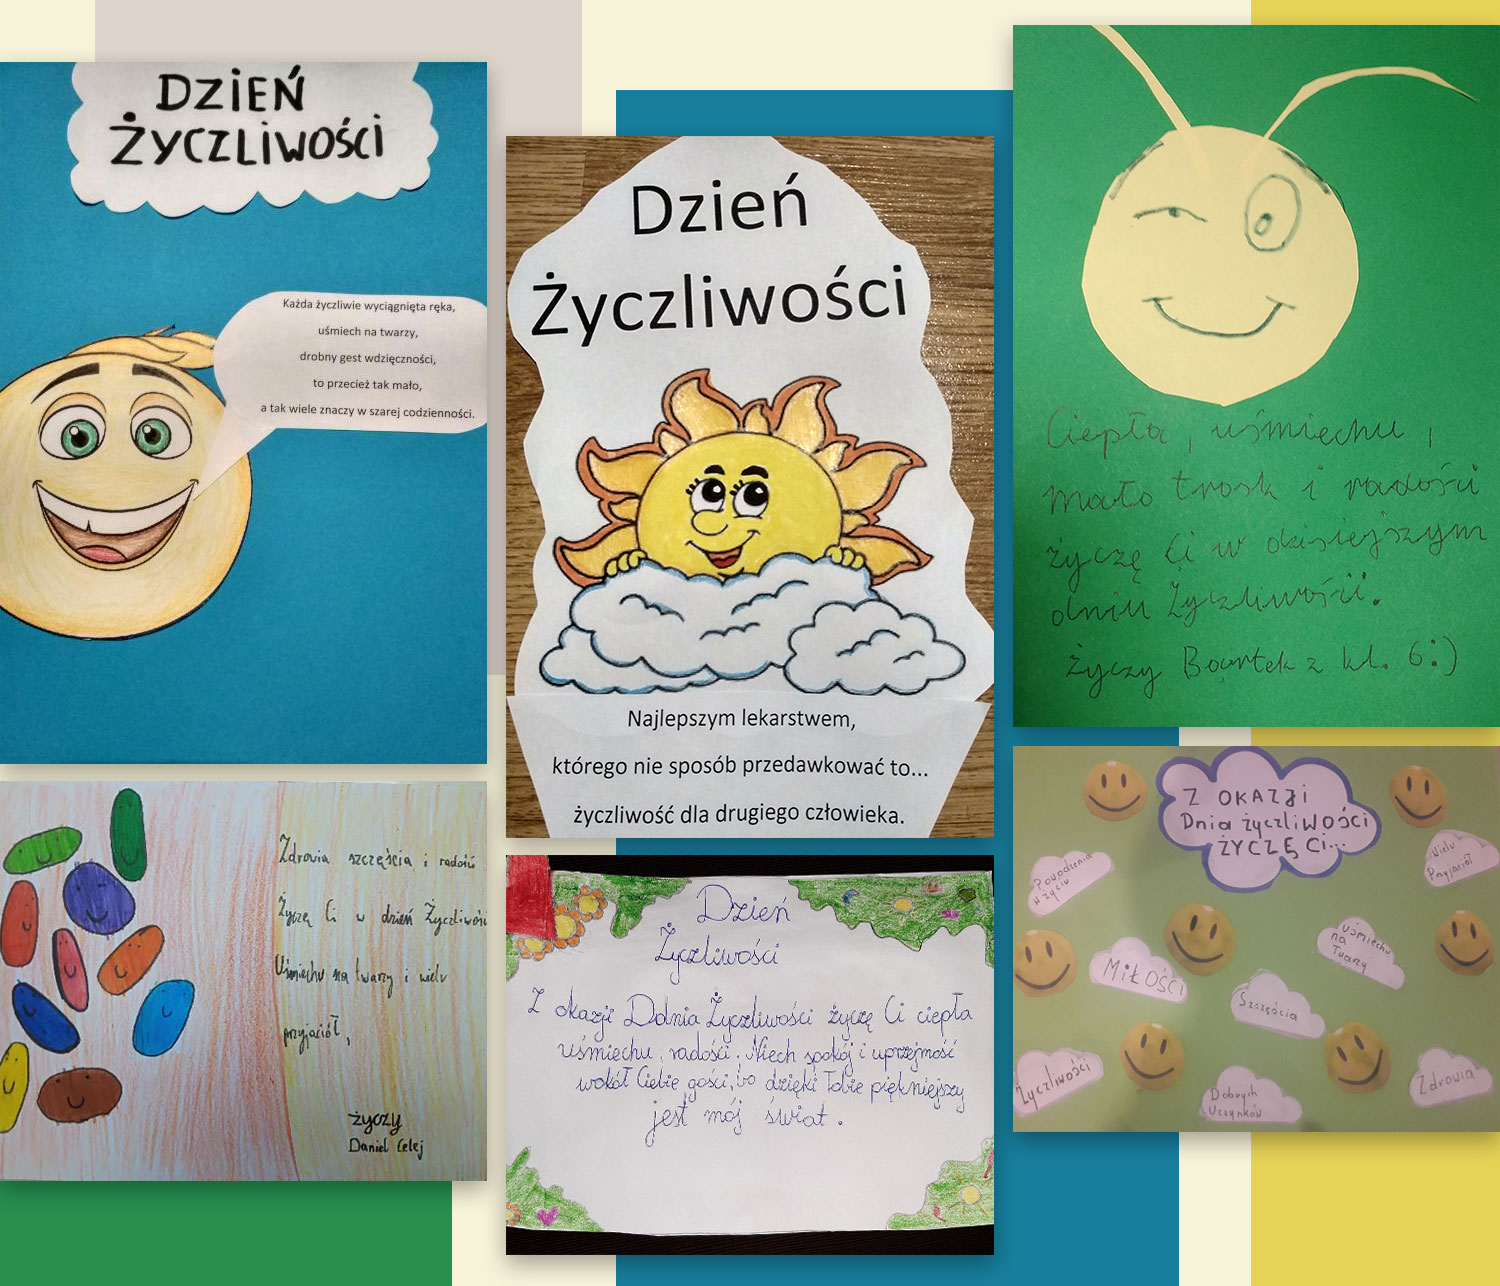 DZIEŃ
ŻYCZLIWOŚCI
Każda życzliwie wyciągnięta ręka,
uśmiech na twarzy,
drobny gest wdzięczności,
to przecież tak mało,
a tak wiele znaczy w szarej codzienności.
Zdrowia szczęścia i radość
Życzę Ci w dzień Życzliwości
Uśmiechu na twarzy i wielu
przyjaciół,
życzy
Daniel Celej
Dzień
Życzliwości
Najlepszym lekarstwem,
którego nie sposób przedawkować to...
życzliwość dla drugiego człowieka.
Dzień
Życzliwości
Z okazji Ddnia Życzliwości życzę Ci ciepła
uśmiechu, radości. Niech spokój i uprzejmość
wokół Ciebie gości, bo dzięki Tobie piękniejszy
jest mój świat.
Ciepła, uśmiechu,
mało trosk i radości
życzę Ci w dzisiejszym
dniu Życzliwości.
życzy Bartek z kl. 6:)
Z OKAZJI
Dnia życzliwości
ŻYCZĘ Ci...
Powodzenia
w życiu
Wielu
Przyjaciół
MIŁOŚCI
Uśmiechu
na
Twarzy
Szczęścia
Życzliwości
Dobrych
Uczynków
Zdrowia